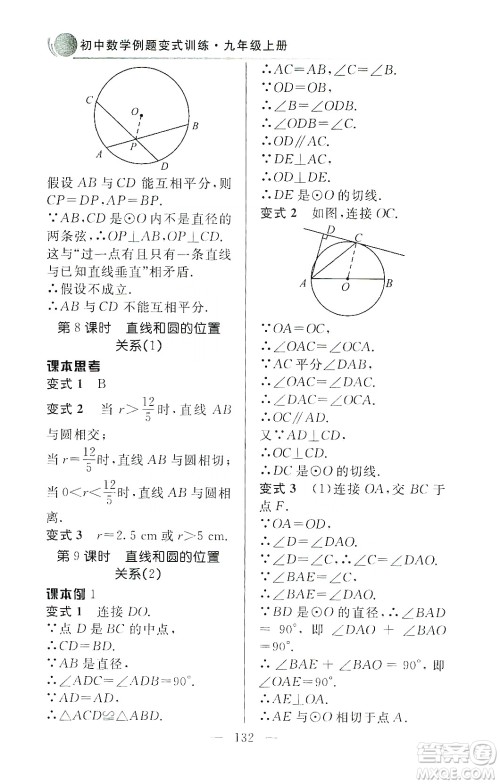 初中数学例题变式训练·九年级上册
C
O
B
A
P
D
假设 AB 与 CD 能互相平分,则
CP=DP,AP=BP.
∵AB、CD 是⊙O 内不是直径的
两条弦,
∴OP⊥AB,OP⊥CD.
这与“过一点有且只有一条直线
与已知直线垂直”相矛盾.
∴假设不成立.
∴AB 与 CD 不能互相平分.
第 8 课时 直线和圆的位置
关系(1)
课本思考
变式 1 B
变式 2 当 r>12/5时,直线 AB 与
圆相交;
当 r=12/5时,直线 AB 与圆相切;
当 0<r<12/5时,直线 AB 与圆相
离.
变式 3 r=2.5 cm 或 r>5 cm.
第 9 课时 直线和圆的位置
关系(2)
课本例 1
变式 1 连接 DO.
∵点 D 是 BC 的中点,
∴CD=BD.
∵AB 是直径,
∴∠ADC=∠ADB=90°.
∵AD=AD,
∴△ACD≌△ABD.
∴AC=AB,∠C=∠B.
∵OD=OB,
∴∠B=∠ODB.
∴∠ODB=∠C.
∴OD∥AC.
∵DE⊥AC,
∴OD⊥DE.
∴DE 是⊙O 的切线.
变式 2 如图,连接 OC.
D
C
A
O
B
∵OA=OC,
∴∠OAC=∠OCA.
∵AC 平分∠DAB,
∴∠DAC=∠OAC.
∴∠DAC=∠OCA.
∴OC∥AD.
又∵AD⊥CD,
∴OC⊥CD.
∴DC 是⊙O 的切线.
变式 3 (1)连接 OA,交 BC 于
点 F.
∵OA=OD,
∴∠D=∠DAO.
∵∠D=∠C,
∴∠C=∠DAO.
∵∠BAE=∠C,
∴∠BAE=∠DAO.
∵BD 是⊙O 的直径,
∴∠BAD=90°,即∠DAO+
∠BAO=90°.
∴∠BAE+∠BAO=90°,即
∠OAE=90°.
∴AE⊥OA.
∴AE 与⊙O 相切于点 A.
132